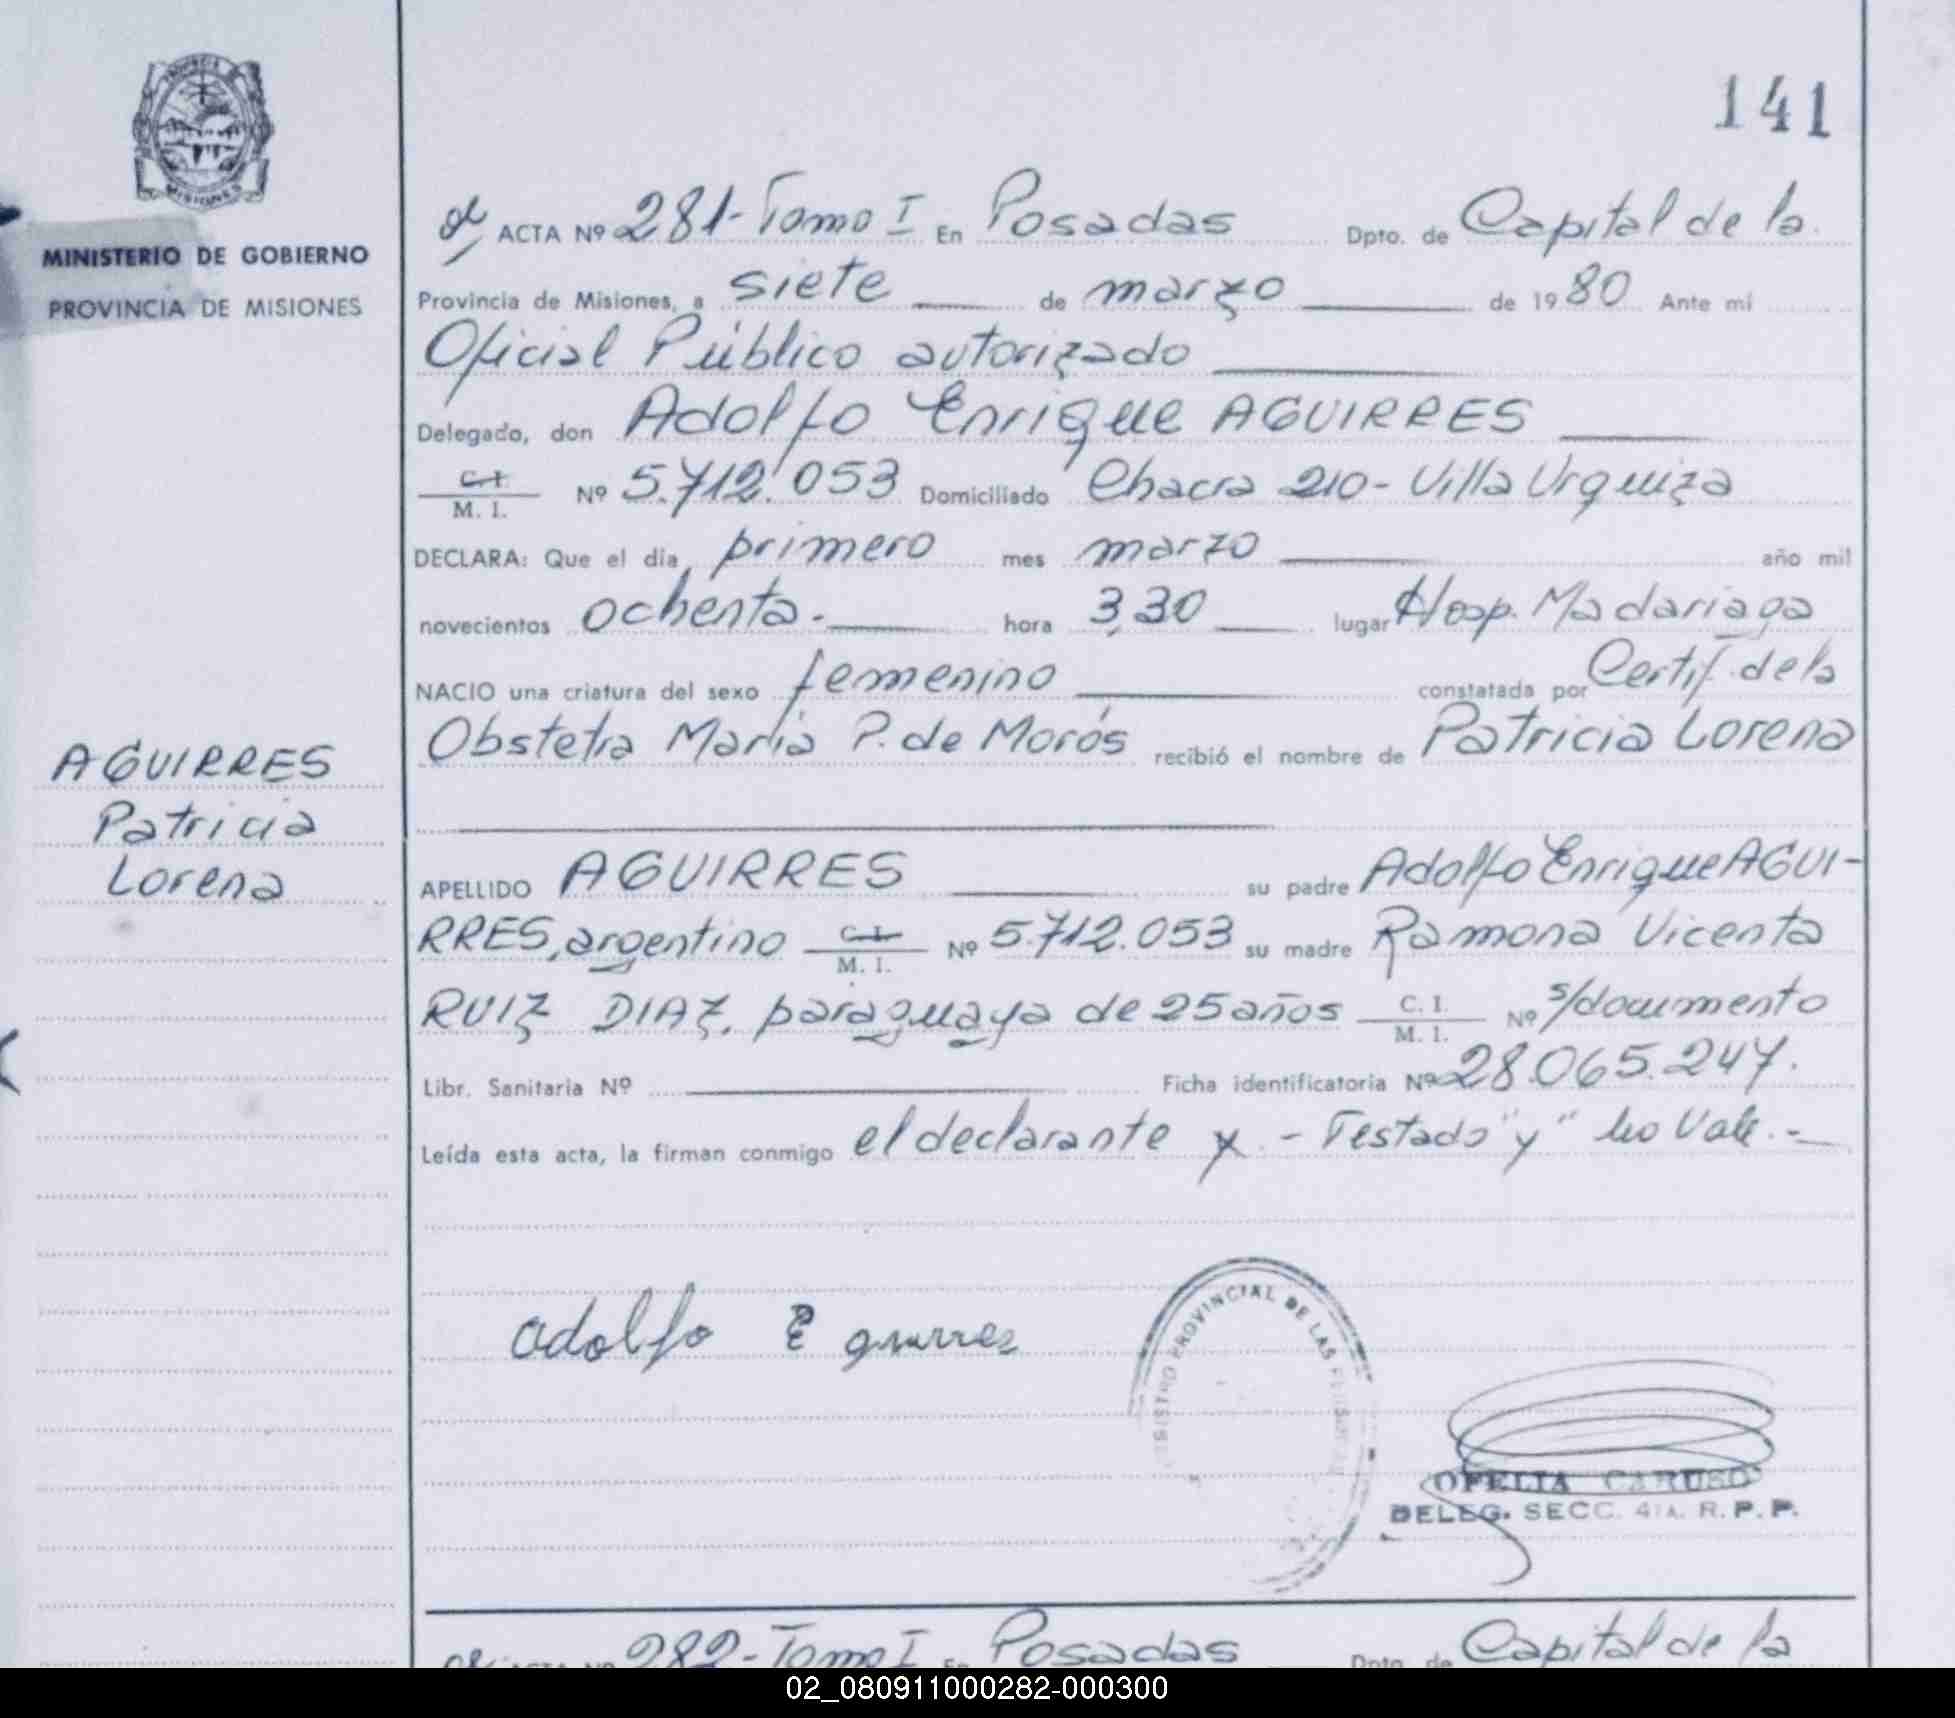 141
PROVINCIA DE
MISIONES
MINISTERIO DE GOBIERNO
PROVINCIA DE MISIONES
ACTA Nº 281- Tomo I En Posadas Dpto. de Capital de la
Provincia de Misiones, a siete de marzo de 1980 Ante mí
Oficial Público autorizado
Delegado, don Adolfo Enrique AGUIRRES
C.I.
M. I. Nº 5.712.053 Domiciliado Chacra 210- Villa Urquiza
DECLARA: Que el día primero mes marzo año mil
novecientos ochenta.- hora 3,30 lugar Hosp. Madariaga
NACIO una criatura del sexo femenino constatada por Certif. de la
Obstetra María P. de Morós recibió el nombre de Patricia Lorena
AGUIRRES
Patricia
Lorena
APELLIDO AGUIRRES su padre Adolfo Enrique AGUI-
RRES, argentino C.I. M. I. Nº 5.712.053 su madre Ramona Vicenta
RUIZ DIAZ, paraguaya de 25 años C. I. M. I. Nº s/documento
Libr. Sanitaria Nº Ficha identificatoria Nº 28.065.247.
Leída esta acta, la firman conmigo el declarante y .- Testado "y" No Vale.-
adolfo E guirres
REGISTRO PROVINCIAL DE LAS
OFELIA CARUSO
DELEG. SECC. 4ta. R. P. P.
ACTA Nº 282- Tomo I En Posadas Dpto. de Capital de la
02_080911000282-000300